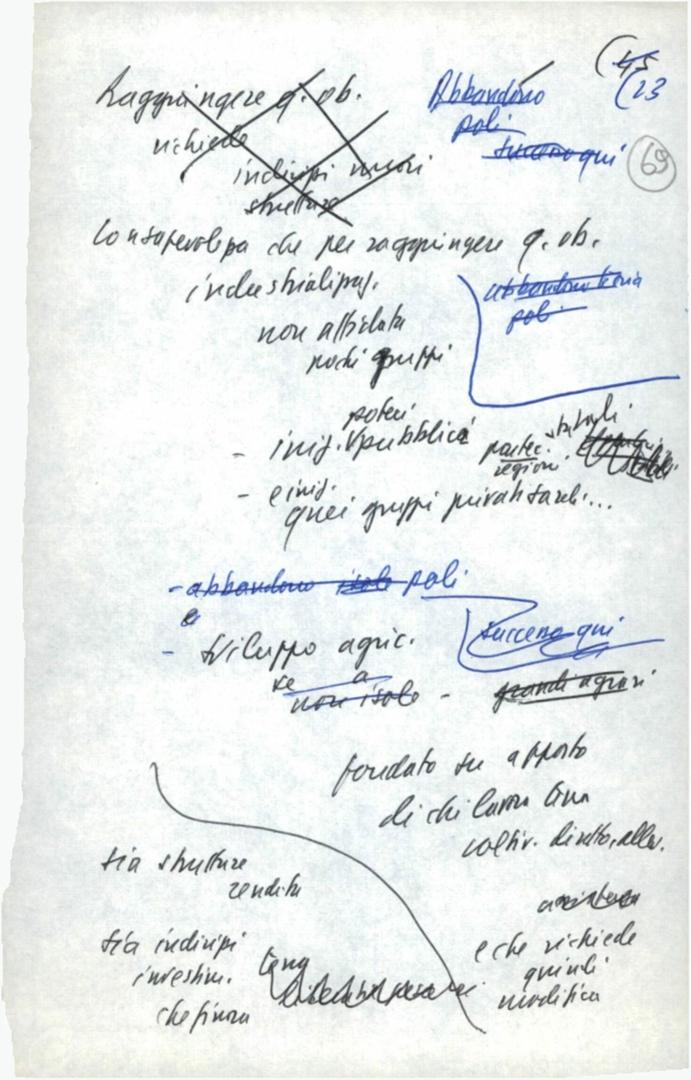 (45
(23
69
Raggiungere q. ob.
richiede
indirizzi nuovi
strutture
Abbandono
poli
succeno qui
Consapevolezza che per raggiungere q. ob.
industrializzaz.
non affidata
pochi gruppi
abbandono
poli
poteri
- iniz. pubblica
partec. statali
regioni
- e iniz.
quei gruppi privati sardi...
- abbandono isole poli
e
- sviluppo agric.
succeno qui
se a
non isole -
grandi agrari
fondato su apporto
di chi lavora terra
coltiv. diretto, allev.
sia strutture
rendita
sia indirizzi
investim.
che finora
e che richiede
quindi
modifica